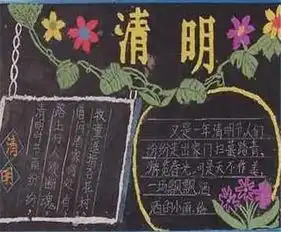 清明
清明
清明时节雨纷纷
路上行人欲断魂
借问酒家何处有
牧童遥指杏花村
又是一年清明节,人们
纷纷走出家门扫墓踏青,
游览春光.可是天不作美,
一场飘飘洒
洒的小雨,给